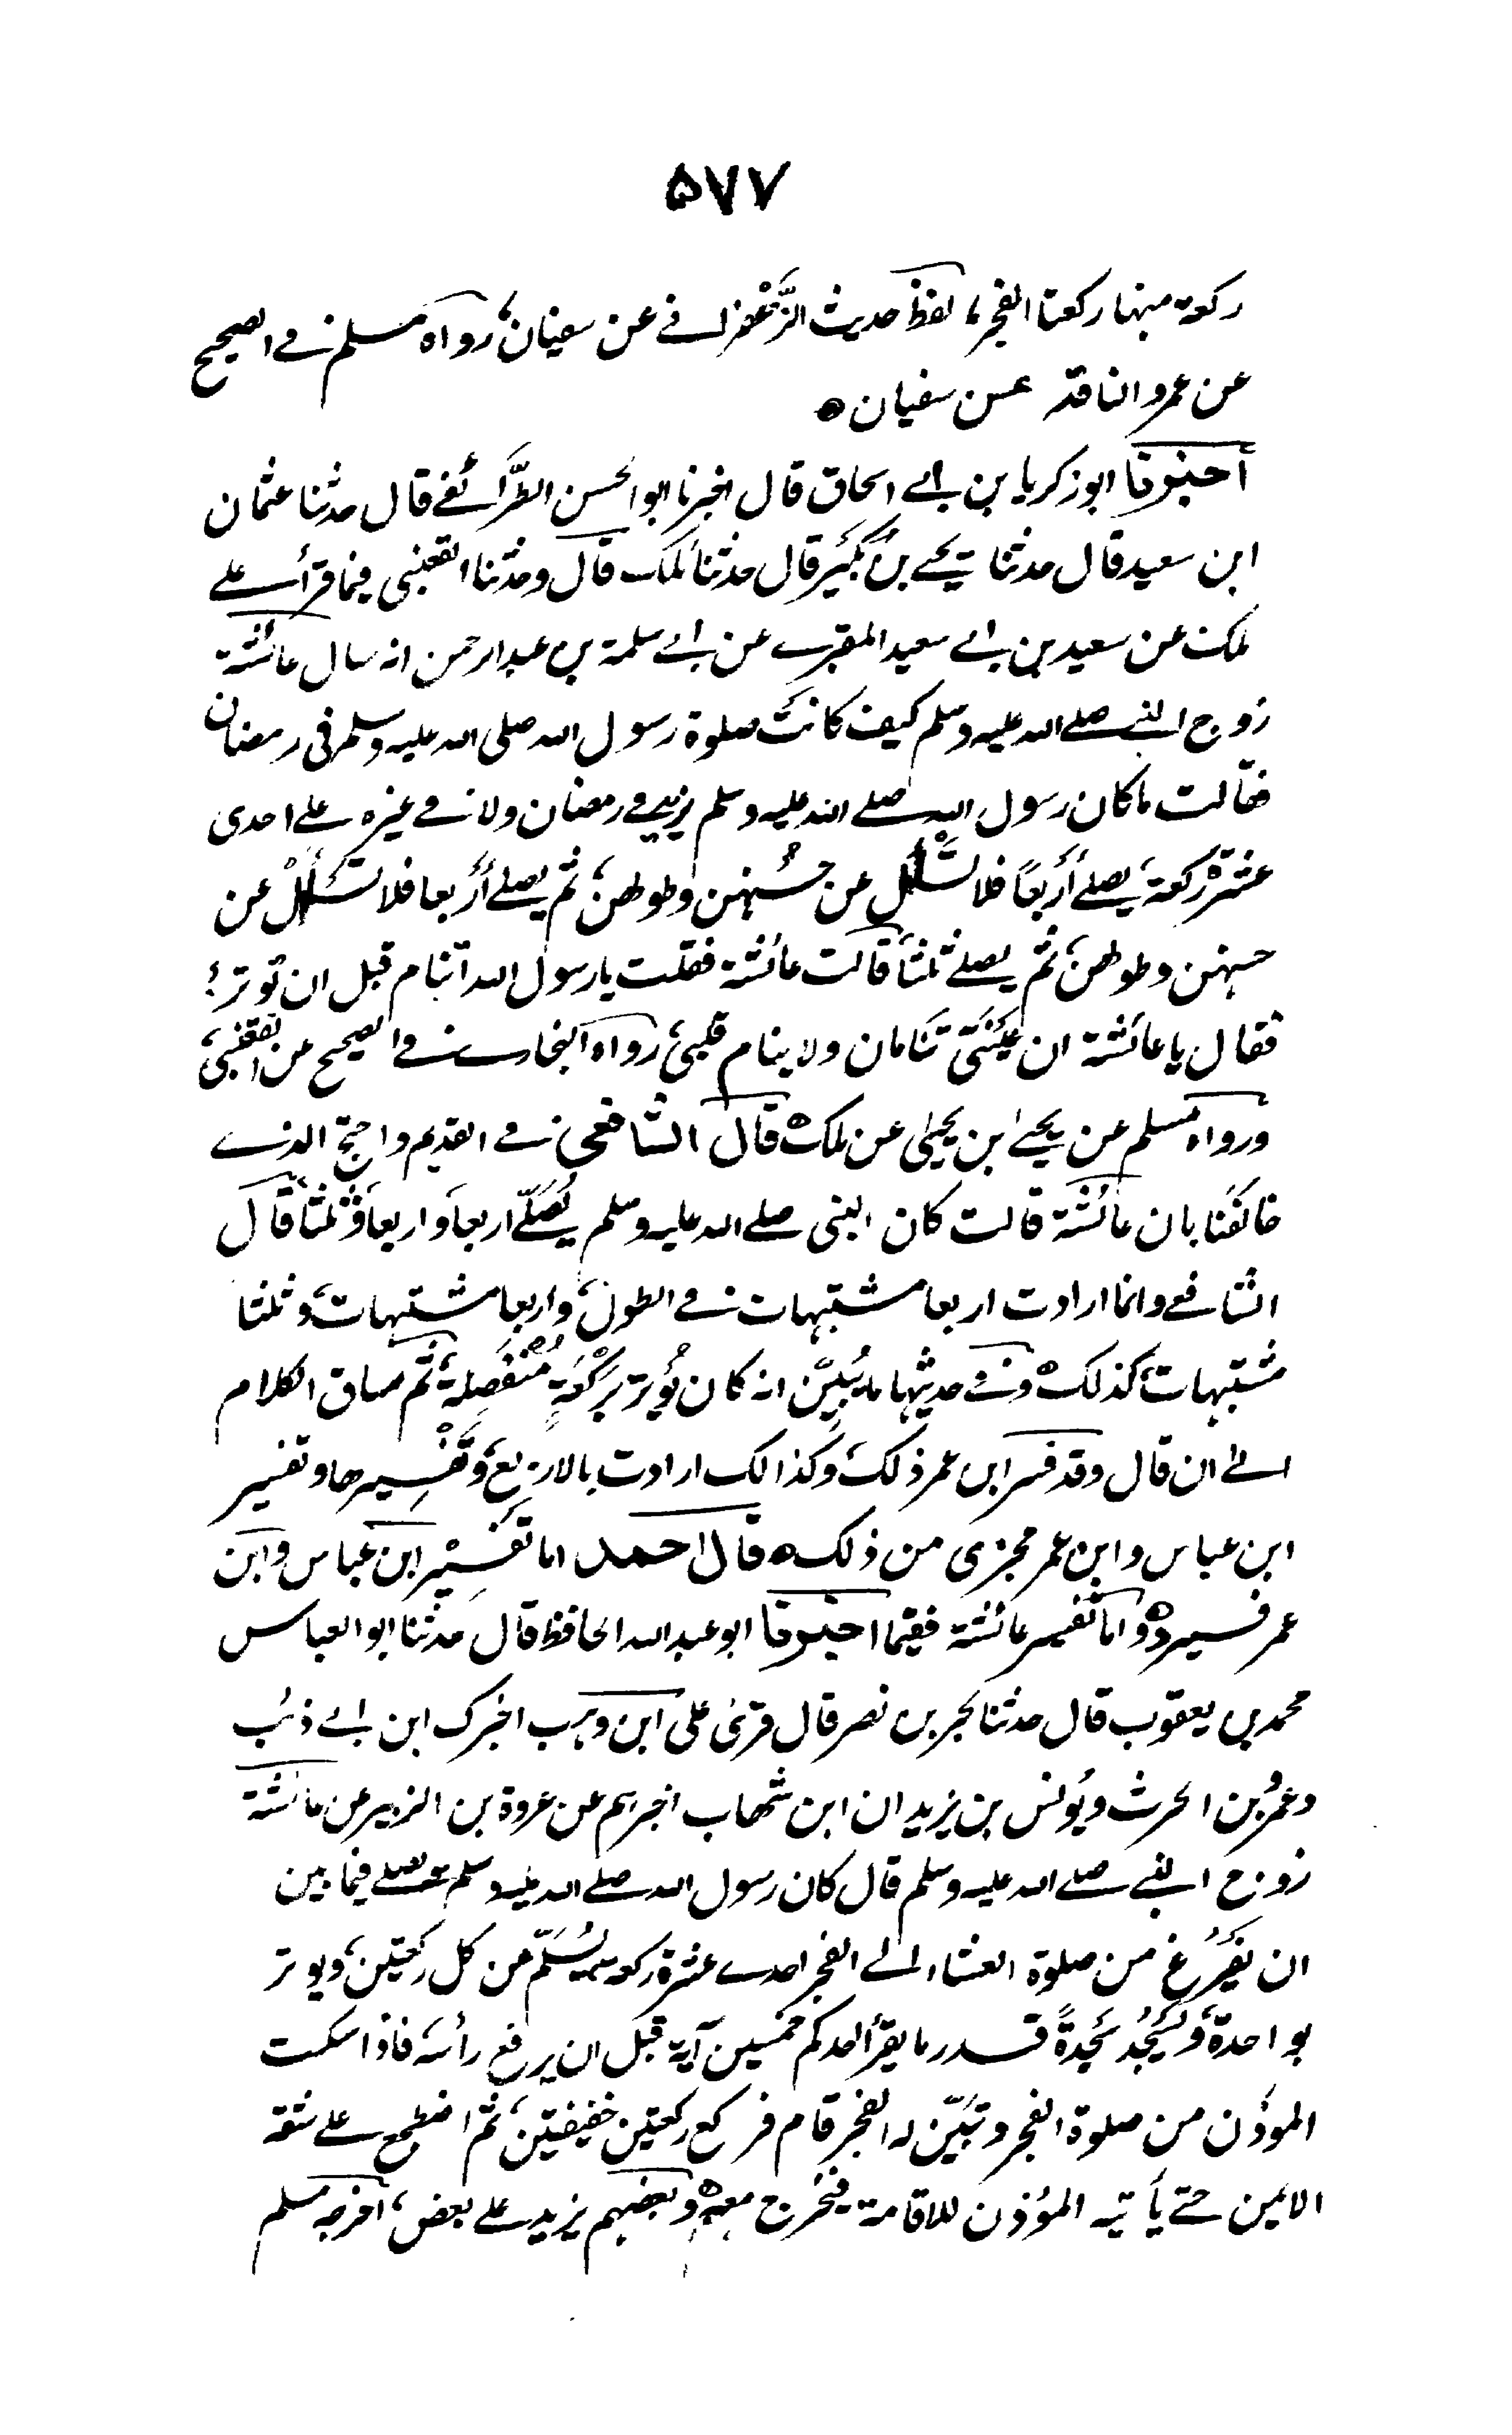 ۵۷۷
ركعة منها ركعتا الفجر، لفظ حديث الزَّعْفراني عن سفيان، رواه مسلم في الصحيح
عن عمرو الناقد عن سفيان ه
أخبرنا ابو زكريا بن ابي اسحاق قال اخبرنا ابو الحسن الطَّرَائفي قال حدثنا عثمان
ابن سعيد قال حدثنا يحيى بن بُكَيْر قال حدثنا مٰلك قال وحدثنا القعنبي فيما قرأ على
مٰلك عن سعيد بن ابي سعيد المقبري عن ابي سلمة بن عبد الرحمن انه سال عائشة
زوج النبي صلى الله عليه وسلم كيف كانت صلوة رسول الله صلى الله عليه وسلم في رمضان
فقالت ما كان رسول الله صلى الله عليه وسلم يزيد في رمضان ولا في غيره على احدى
عشرة ركعة، يصلى أربعًا فلا تسْأل عن حُسْنهن وطولهن، ثم يصلى أربعا فلا تسْألْ عن
حسنهن وطولهن، ثم يصلى ثلثا قالت عائشة فقلت يا رسول الله اتنام قبل ان توتر؛
فقال يا عائشة ان عَيْنَيَّ تَنَامان ولا ينام قلبي، رواه البخاري في الصحيح عن القعنبي،
ورواه مسلم عن يحيى ابن يحيٰى عن مٰلك ه قال الشافعي في القديم واحتج الذي
خالفَنا بان عائشة قالت كان النبي صلى الله عليه وسلم يُصَلّي اربعا واربعا وثلثا قال
الشافعي وانما ارادت اربعا مشتبهات في الطول، واربعا مشتبهات، وثلثا
مشتبهات، كذلك ه وفي حديثها ما يُبَيّن انه كان يُوتر بِرَكْعَةٍ مُنْفَصِلة، ثم ساق الكلام
الى ان قال وقد فسر ابن عمر ذلك، وكذالك ارادت بالاربع، وتَفْسِيرها وتفسير
ابن عباس وابن عمر مجزى من ذلك ه قال احمد اما تَفْسِيْر ابن عباس وابن
عمر فسيرد ه واما تفسير عائشة ففيما اخبرنا ابو عبد الله الحافظ قال حدثنا ابو العباس
محمد بن يعقوب قال حدثنا بحر بن نصر قال قرئ على ابن وهب اخبرك ابن ابي ذئب
وعمرو بن الحرث ويُونس بن يزيد ان ابن شهاب اخبرهم عن عروة بن الزبير عن عائشة
زوج النبي صلى الله عليه وسلم قال كان رسول الله صلى الله عليه وسلم يصلى فيما بين
ان يَفْرُغ من صلوة العشاء الى الفجر احدى عشرة ركعة يُسَلّم من كل ركعتين، ويوتر
بواحدة، ويَسْجُد سَجْدةً قدر ما يقرأ احدكم خمسين آية قبل ان يرفع رأسه، فاذا سكت
المؤذن من صلوة الفجر وتَبَيّن له الفجر قام فركع ركعتين خفيفتين، ثم اضطجع على شقه
الايمن حتى يأتيه المؤذن للاقامة فيَخْرج معه ه وبعضهم يزيد على بعض، أخرجه مسلم